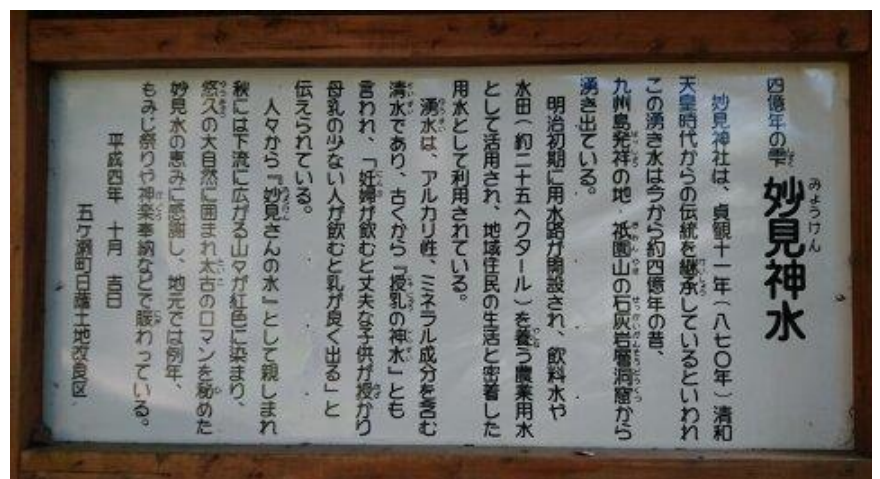 四億年の雫 妙見神水
妙見神社は、貞観十一年(八七〇年)清和
天皇時代からの伝統を継承しているといわれ
この湧き水は今から約四億年の昔、
九州島発祥の地 祇園山の石灰岩層洞窟から
湧き出ている。
明治初期に用水路が開設され、飲料水や
水田(約二十五ヘクタール)を養う農業用水
として活用され、地域住民の生活と密着した
用水として利用されている。
湧水は、アルカリ性、ミネラル成分を含む
清水であり、古くから『授乳の神水』とも
言われ、「妊婦が飲むと丈夫な子供が授かり
母乳の少ない人が飲むと乳が良く出る」と
伝えられている。
人々から『妙見さんの水』として親しまれ
秋には下流に広がる山々が紅色に染まり、
悠久の大自然に囲まれ太古のロマンを秘めた
妙見水の恵みに感謝し、地元では例年、
もみじ祭りや神楽奉納などで賑わっている。
平成四年 十月 吉日
五ケ瀬町日蔭土地改良区